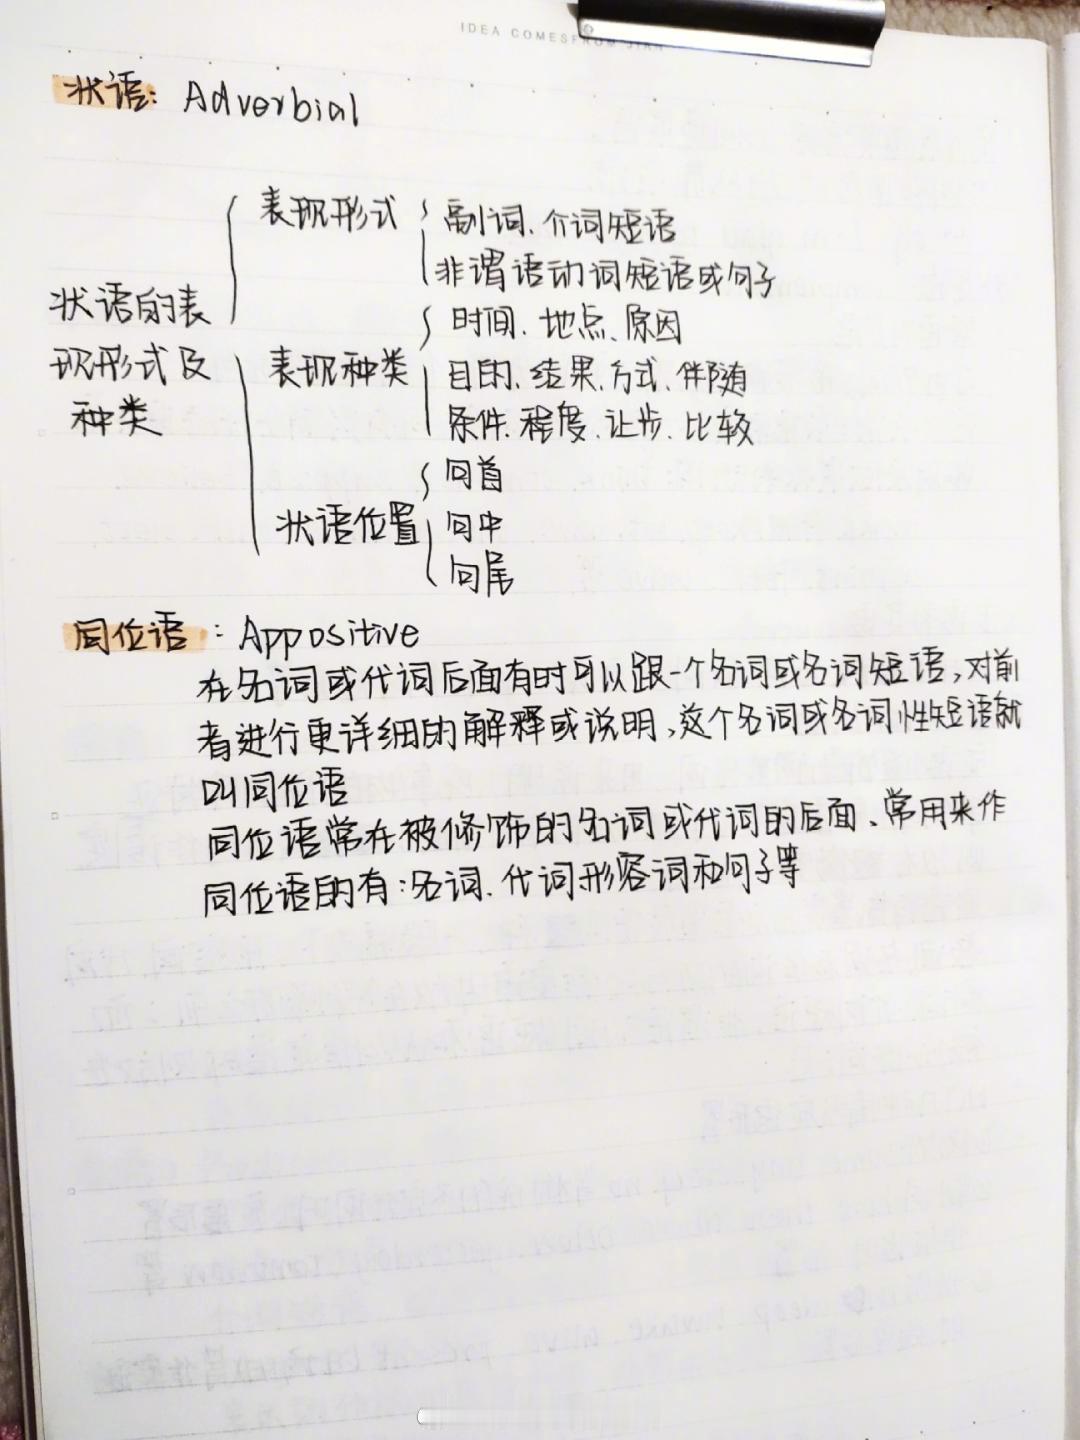 IDEA COMES FROM JIAN
状语: Adverbial
表现形式
副词、介词短语
非谓语动词短语或句子
状语的表
现形式及
种类
表现种类
时间、地点、原因
目的、结果、方式、伴随
条件、程度、让步、比较
状语位置
句首
句中
句尾
同位语: Appositive
在名词或代词后面有时可以跟一个名词或名词短语,对前
者进行更详细的解释或说明,这个名词或名词性短语就
叫同位语
同位语常在被修饰的名词或代词的后面、常用来作
同位语的有:名词、代词形容词和句子等